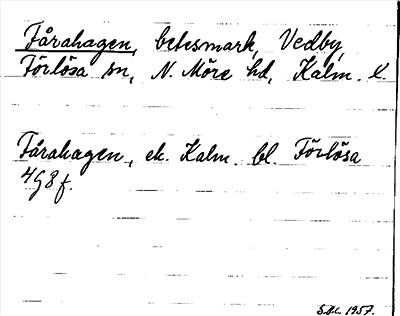 Fårahagen, betesmark, Vedby,
Förlösa sn, N. Möre hd, Kalm. l.
Fårahagen, ek. Kalm. bl. Förlösa
4g8f.
1957.